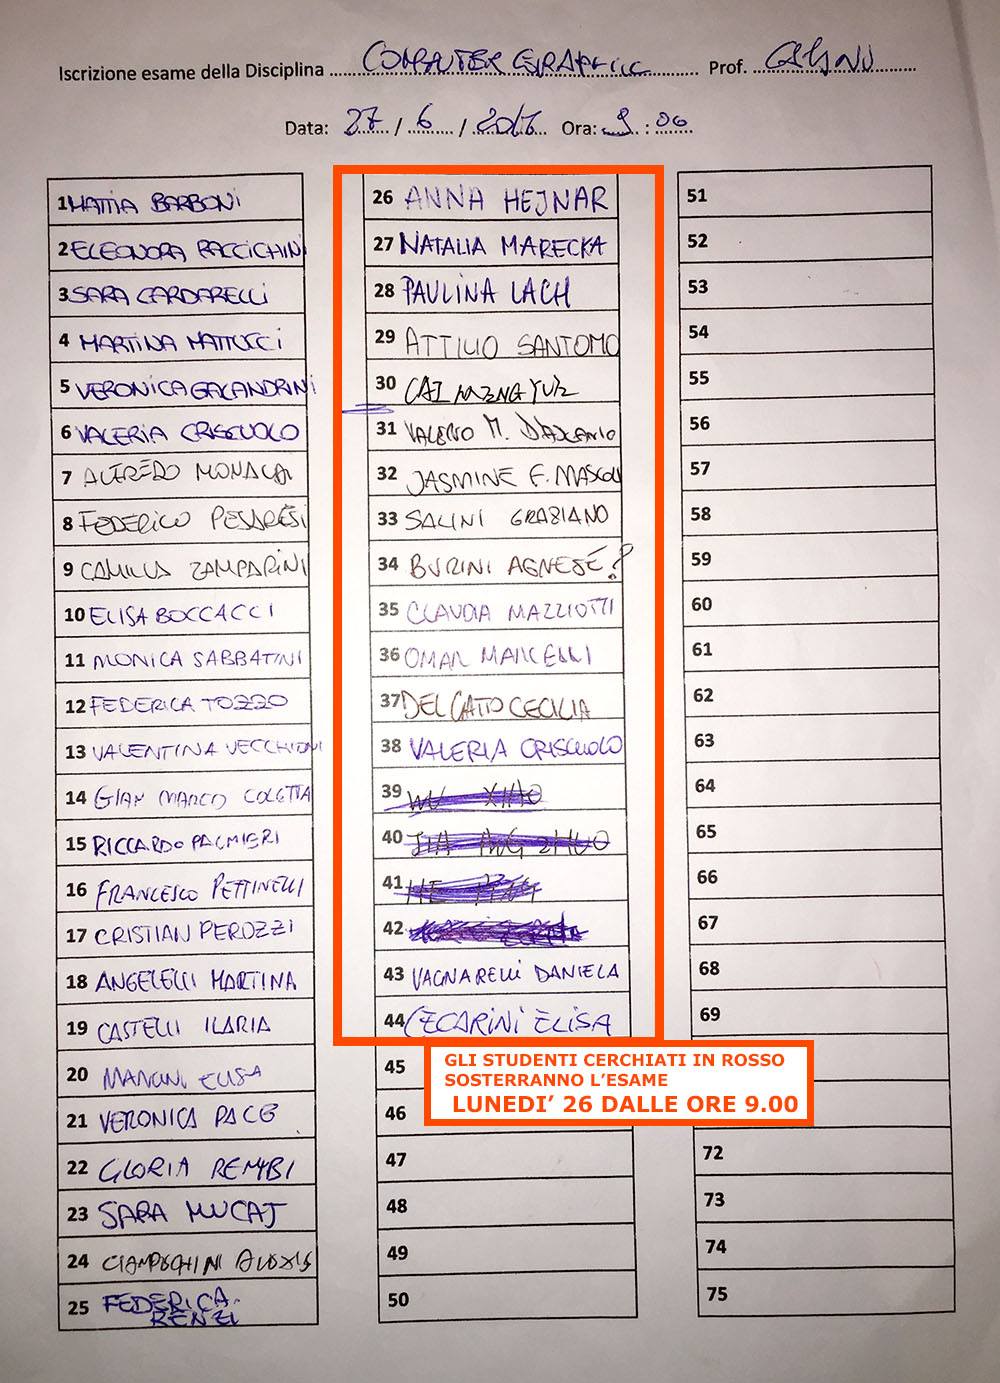 Iscrizione esame della Disciplina COMPUTER GRAPHIC Prof.
Data: 27 / 6 / 2017 Ora: 9 : 00
1 MATTIA BARBONI
2 ELEONORA RACCICHINI
3 SARA CARDARELLI
4 MARTINA MATTUCCI
5 VERONICA GALANDRINI
6 VALERIA CRISCUOLO
7 ALFREDO MONACA
8 FEDERICO PESARESI
9 CAMILLA ZAMPARINI
10 ELISA BOCCACCI
11 MONICA SABBATINI
12 FEDERICA TOZZO
13 VALENTINA VECCHIONI
14 GIAN MARCO COLETTA
15 RICCARDO PALMIERI
16 FRANCESCO PETTINELLI
17 CRISTIAN PEROZZI
18 ANGELELLI MARTINA
19 CASTELLI ILARIA
20 MANCINI ELISA
21 VERONICA PACE
22 GLORIA REMBI
23 SARA MUCAJ
24 CIAMPECHINI ALEXIS
25 FEDERICA
RENZI
26 ANNA HEJNAR
27 NATALIA MARECKA
28 PAULINA LACH
29 ATTILIO SANTOMO
30 CAI
31 VALERIO M. D'ASCANIO
32 JASMINE F. MASCOLI
33 SALINI GRAZIANO
34 BURINI AGNESE?
35 CLAUDIA MAZZIOTTI
36 OMAR MARCELLI
37 DEL GATTO CECILIA
38 VALERIA CRISCUOLO
39 WU XIAO
40
41
42
43 VAGNARELLI DANIELA
44 CECARINI ELISA
45
46
47
48
49
50
51
52
53
54
55
56
57
58
59
60
61
62
63
64
65
66
67
68
69
72
73
74
75
GLI STUDENTI CERCHIATI IN ROSSO
SOSTERRANNO L'ESAME
LUNEDI' 26 DALLE ORE 9.00